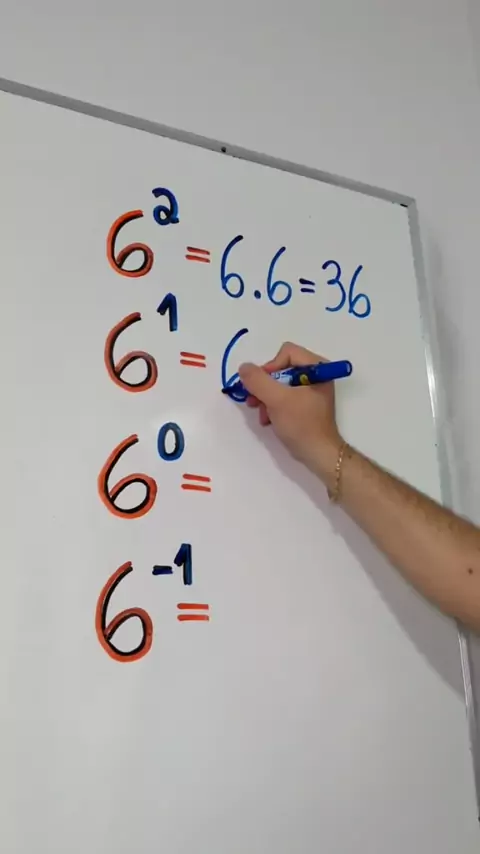 6² = 6.6=36
6¹ = 6
6⁰ =
6⁻¹ =